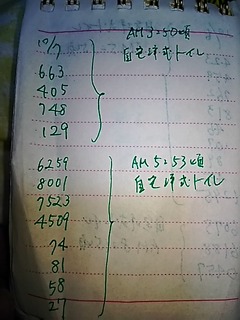 10/7
AM3:50頃
自宅洋式トイレ
663
405
748
129
6259
AM5:53頃
8001
自宅洋式トイレ
7523
4509
74
81
58
27